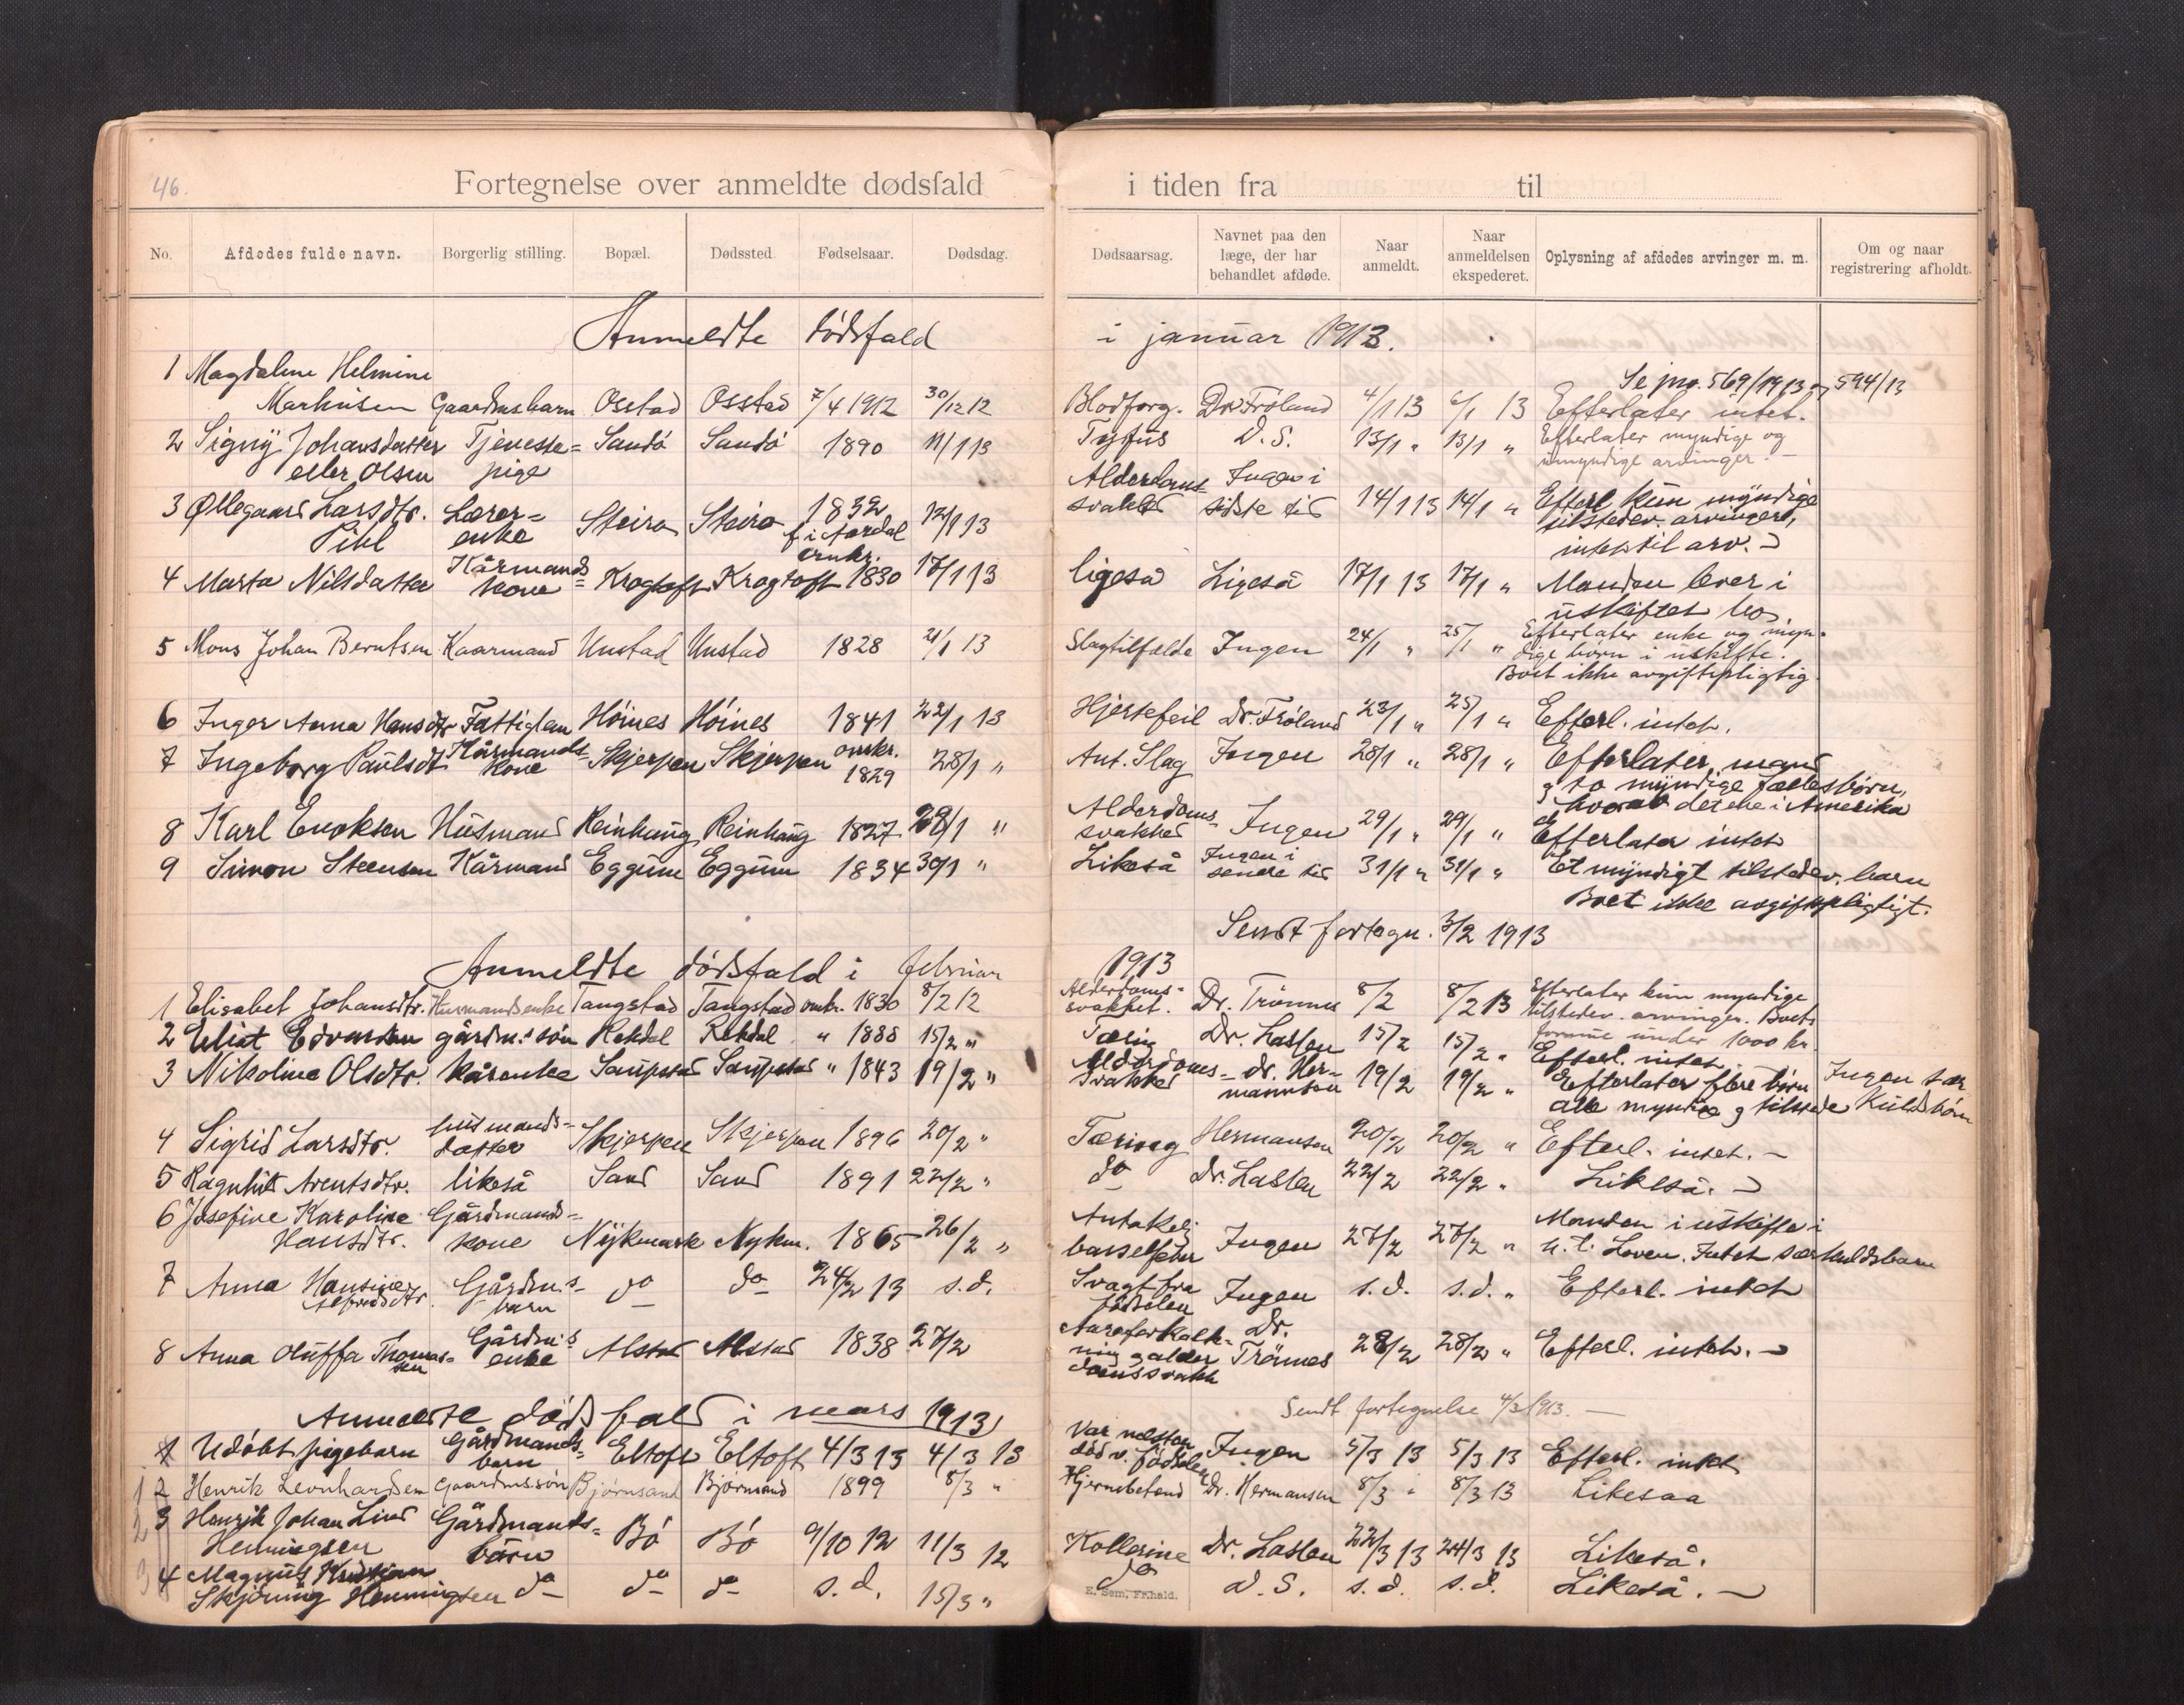 46.
Fortegnelse over anmeldte dødsfald i tiden fra til
No. Afdødes fulde navn. Borgerlig stilling. Bopæl. Dødssted. Fødselsaar. Dødsdag. Dødsaarsag. Navnet paa den læge, der har behandlet afdøde. Naar anmeldt. Naar anmeldelsen ekspederet. Oplysning af afdødes arvinger m. m. Om og naar registrering afholdt.
Anmeldte dødsfald i januar 1913.
Se jno. 569/1913 og 594/13
1 Magdalene Helmine
Markusen Gaardmsbarn Osstad Osstad 7/4 1912 30/12 12 Blodforg. Dr Frøland 4/1 13 6/1 13 Efterlater intet.
2 Signy Johansdatter Tjeneste= Sandö Sandö 1890 11/1 13 Tyfus D. S. 13/1 " 13/1 " Efterlater myndige og
eller Olsen pige umyndige arvinger. -
3 Øllegaard Larsdtr. Lærer= Steira Steira 1832 12/1 13 Alderdoms= Ingen i 14/1 13 14/1 " Efterl kun myndige
Pihl enke f. i svakhed sidste tid tilstedev. arvinger,
intet til arv.
4 Marta Nilsdatter Kårmands= kone Krogtoft Krogtoft omkr. 1830 17/1 13 ligeså Ligeså 17/1 13 17/1 " Manden lever i
uskiftet bo.
5 Mons Johan Berntsen Kaarmand Unstad Unstad 1828 21/1 13 Slagtilfælde Ingen 24/1 " 25/1 " Efterlater enke og myn=
dige børn i uskifte.
Boet ikke avgiftspligtig.
6 Inger Anna Hansdtr Fattiglem Höines Höines 1841 22/1 13 Hjertefeil Dr. Frøland 23/1 " 25/1 " Efterl. intet.
7 Ingeborg Paulsdt Kårmands= kone Skjerpen Skjerpen omkr. 1829 28/1 " Ant. Slag Ingen 28/1 " 28/1 " Efterlater mand
og to myndige fællesbörn,
hvorav det ene i Amerika
8 Karl Enoksen Husmand Reinhaug Reinhaug 1827 28/1 " Alderdoms= svakhed Ingen 29/1 " 29/1 " Efterlater intet
9 Simon Steensen Kårmand Eggum Eggum 1834 30/1 " Likeså Ingen i senere tid 31/1 " 31/1 " Et myndigt tilstedev. barn
Boet ikke avgiftspligtigt.
Sendt fortegn. 3/2 1913
Anmeldte dødsfald i februar 1913
1 Elisabet Johansdtr. Husmandsenke Tangstad Tangstad omkr. 1830 8/2 12 Alderdoms= svakhet. Dr. Trønnes 8/2 8/2 13 Efterlater kun myndige
tilstedev. arvinger. Boets
formue under 1000 kr.
2 Eliot Edvardsen gårdm.s sön Rekdal Rekdal " 1888 15/2 " Tæring Dr. Laslen 15/2 15/2 " Efterl. intet.
3 Nikoline Olsdtr. kårenke Saupstad Saupstad " 1843 19/2 " Alderdoms= svakhed dr. Her= mannsen 19/2 19/2 " Efterlater flere börn Ingen sær
alle myndige og tilstede kuldsbörn
4 Sigrid Larsdtr. husmands= datter Skjerpen Skjerpen 1896 20/2 " Tæring Hermansen 20/2 20/2 " Efterl. intet. -
5 Ragnhild Arentsdtr. likeså Sand Sand 1891 22/2 " do Dr. Laslen 22/2 22/2 " Likeså.
6 Josefine Karoline Gårdmands=
Hansdtr. kone Nykmark Nykm. 1865 26/2 " Antakelig barselfeber Ingen 27/2 27/2 " Manden i uskifte i
h. t. Loven. Intet særkuldsbarn
7 Anna Hansine Alfredsdtr. Gårdm.s= barn do do 24/2 13 s.d. Svagt fra födselen Ingen s.d. s.d. " Efterl. intet
8 Anna Oluffa Thomas= sen Gårdm.s enke Alstad Alstad 1838 27/2 Aareforkalk= ning og alder domssvakh Dr. Trønnes 28/2 28/2 " Efterl. intet.
Sendt fortegnelse 4/3 1913. -
Anmeldte dödsfald i mars 1913
1 Udöbt pigebarn Gårdmands= barn Eltoft Eltoft 4/3 13 4/3 13 Var næsten död v. födselen Ingen 5/3 13 5/3 13 Efterl. intet
1 2 Henrik Leonhardsen Gaardmssön Bjørnsand Bjørnsand 1899 8/3 " Hjernebetænd Dr. Hermansen 8/3 " 8/3 13 Likesaa
2 3 Henrik Johan Lind Gårdmands=
Henningsen börn Bö Bö 9/10 12 11/3 12 Kollerine Dr. Laslen 22/3 13 24/3 13 Likeså.
3 4 Magnus Kristian
Skjöning Henningsen do do do s.d. 15/3 " do D. S. s.d. s.d. Likeså.
E. Sem, Fr.hald.